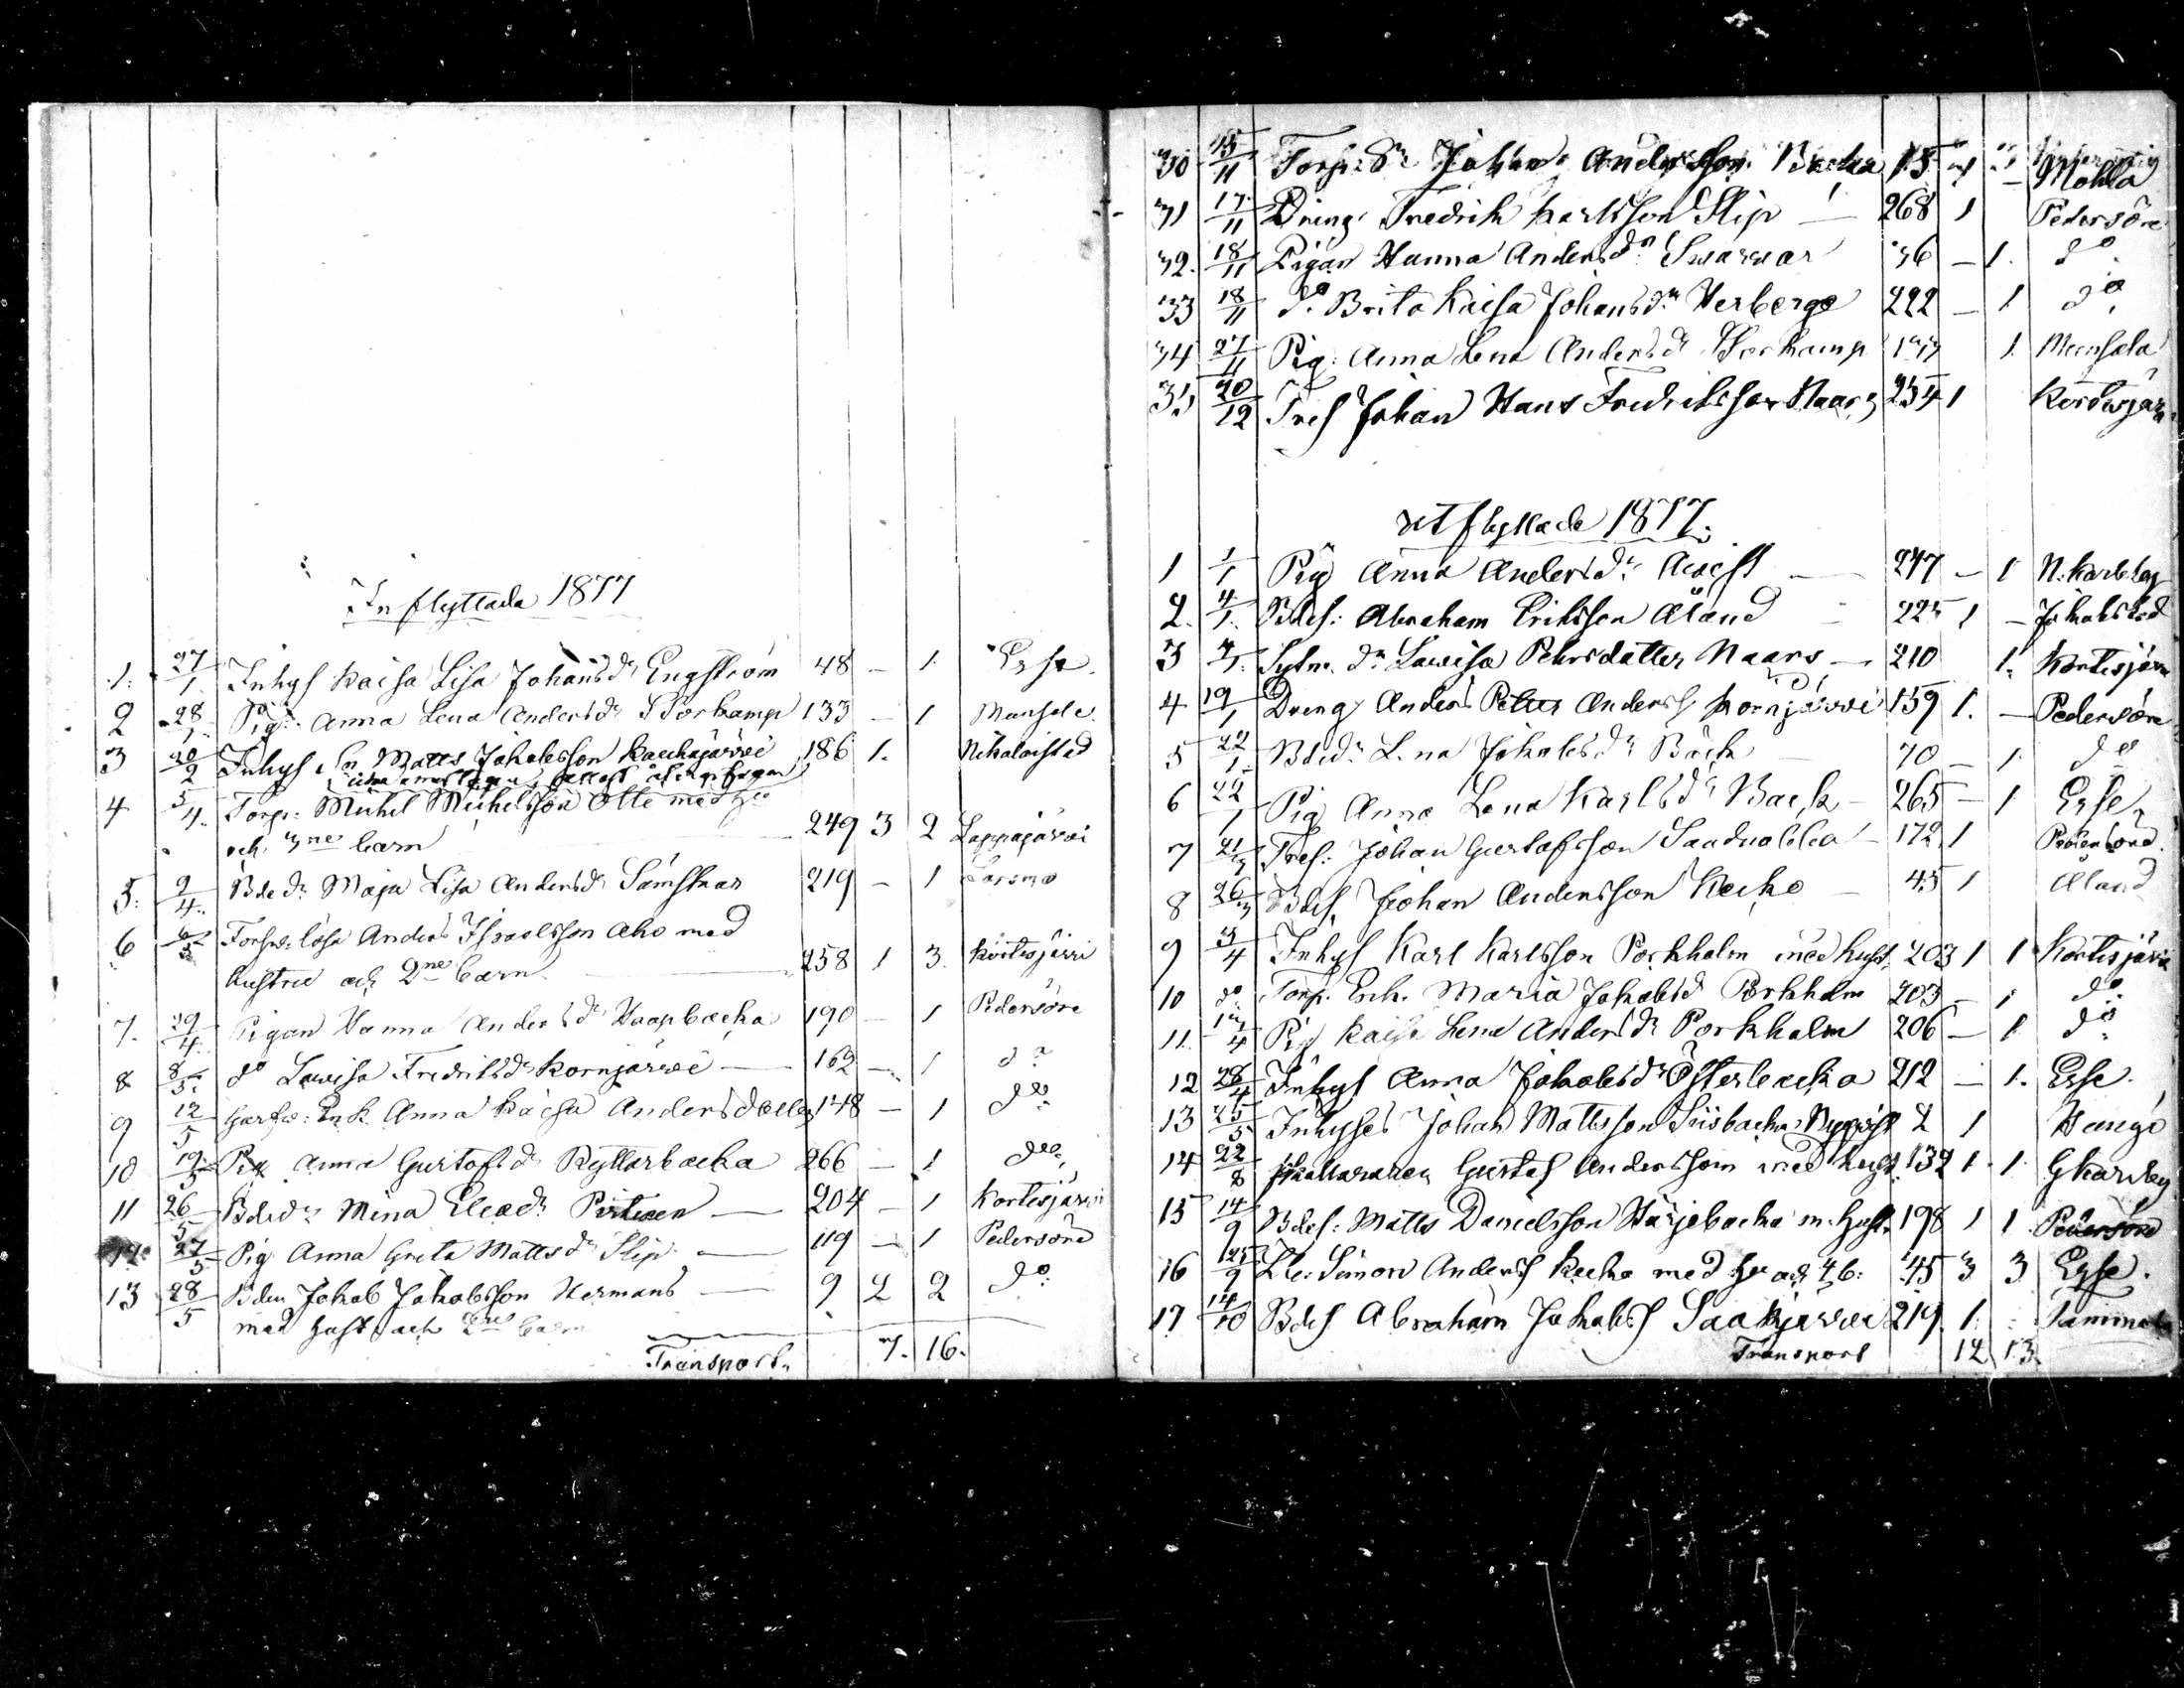 Inflyttada 1877
1. 27/1 Inhys Kaisa Lisa Johansdr Engström 48 — 1. Esse.
2 28/1. Pig. Anna Lena Andersdr Storkamp 133 — 1 Munsala
3 20/2 Inhys Sn Matts Jakobsson Kauhajärvi 186 1. Nikolaistad
4 5/4. Torp: Mickel Mickelsson Otte med hu
och 3ne barn 249 3 2 Lappajärvi
5. 9/4. Bdedr Maja Lisa Andersdr Sämskar 219 — 1 Larsmo
6 6/5 Forsw: lösa Anders Israelsson Aho med
hustru och 2ne barn. 258 1 3. Kortesjärvi
7. 29/4. Pigan Hanna Andersdr Haapbacka 190 — 1 Pedersöre
8 8/5. do Lovisa Fredriksdr Kornjärvi — 162 — 1 do
9 12/5 Enk. Anna Kaisa Andersdotter 148 — 1 do
10 19/5 Pig Anna Gustafsdr Ryttarbacka 266 — 1 do
11 26/5 Bdedr Mina Eliedr — 204 — 1 Kortesjärvi
12 27/5 Pig Anna Greta Mattsdr Slip — 119 — 1 Pedersöre
13 28/5 Bden Jakob Jakobsson Hermans — 9 2 2 do
med hust. och 2ne barn
Transport. 7. 16.
30 15/11 Torp: Sn Johan Andersson Backa 15 Mohla
31 17/11 Dräng Fredrik Karlsson Slip — 268 1 Pedersöre
32. 18/11 Pigan Hanna Andersdr Swarvar 36 — 1. do
33 18/11 do Brita Kaisa Johansdr Herberge 222 — 1 do
34 27/11 Pig. Anna Lena Andersdr Storkamp 133 1. Munsala
35 20/12 Johan Hans Fredriksson Naars 254 1 Kortesjärvi
Utflyttade 1877.
1 1/1 Pig Anna Andersdr — 247 — 1 N. Karleby
2. 4/1. Bdes: Abraham Eriksson Åland 225 1 — Jakobstad
3 Sytn. dr Lovisa Pehrsdotter Naars — 210 1. Kortesjärvi
4 19/1 Dräng Anders Petter Anderss. Kornjärvi 159 1. — Pedersöre
5 22/1. Bdedr Lena Jakobsdr Bäck — 70 — 1. do
6 22/1 Pig Anna Lena Karlsdr Back — 265 — 1 Esse
7 21/3 Johan Gustafsson Sandnabba — 172 1 Pedersöre.
8 26/3 Bdes. Johan Andersson Keckо — 45 1 Åland
9 3/4 Inhys Karl Karlsson Porkholm med hust. 203 1 1 Kortesjärvi
10 do Torp. Enk. Maria Jakobsd Porkholm 203 — 1 do
11. 13/4 Pig Kaisa Lena Andersdr Porkholm 206 — 1 do
12 28/4 Inhys Anna Jakobsdr Österbacka 212 — 1. Esse.
13 25/5 Inhyses Johan Mattsson Siisbacka 2 1 Hangö
14 22/8 Gustaf Andersson med hust. 132 1. 1. Gkarleby
15 14/9 Bdes: Matts Danielsson Härjebacka m. hust. 198 1 1 Pedersöre
16 25/9 Simon Anderss Kecko med hu och 4 b: 45 3 3 Esse.
17 14/10 Bdes Abraham Jakobss Saarijärvi 219. 1.
Transport 12 13.